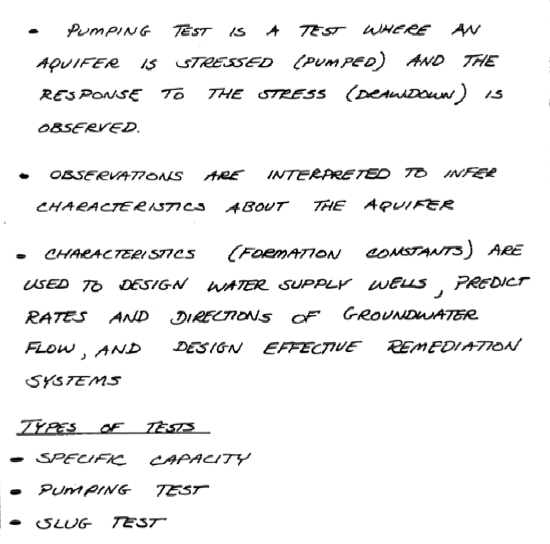 • PUMPING TEST IS A TEST WHERE AN
AQUIFER IS STRESSED (PUMPED) AND THE
RESPONSE TO THE STRESS (DRAWDOWN) IS
OBSERVED.
• OBSERVATIONS ARE INTERPRETED TO INFER
CHARACTERISTICS ABOUT THE AQUIFER
• CHARACTERISTICS (FORMATION CONSTANTS) ARE
USED TO DESIGN WATER SUPPLY WELLS, PREDICT
RATES AND DIRECTIONS OF GROUNDWATER
FLOW, AND DESIGN EFFECTIVE REMEDIATION
SYSTEMS
TYPES OF TESTS
- SPECIFIC CAPACITY
• PUMPING TEST
• SLUG TEST